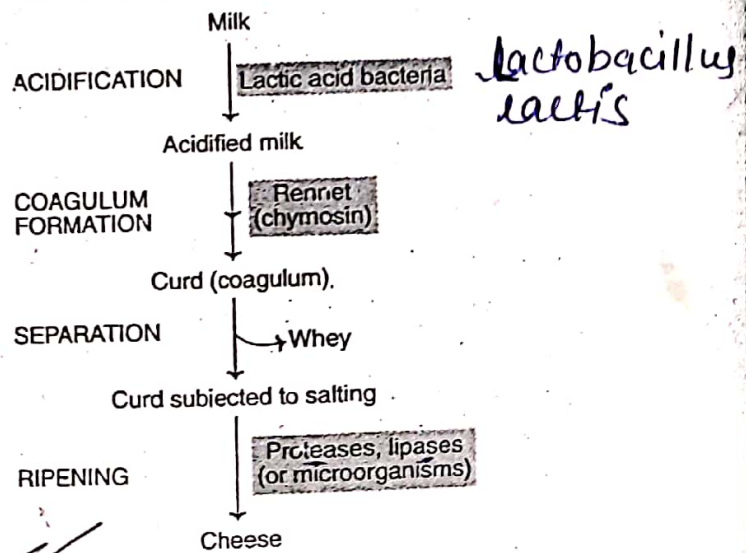 Milk
ACIDIFICATION
Lactic acid bacteria
Lactobacillus
lactis
Acidified milk
COAGULUM
FORMATION
Rennet
(chymosin)
Curd (coagulum).
SEPARATION
Whey
Curd subjected to salting
RIPENING
Proteases, lipases
(or microorganisms)
Cheese